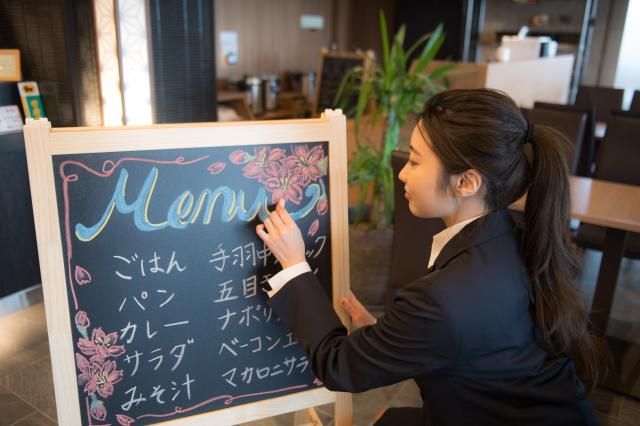 Menu
ごはん
パン
カレー
サラダ
みそ汁
手羽中
五目
ナポリ
ベーコンエ
マカロニサラ